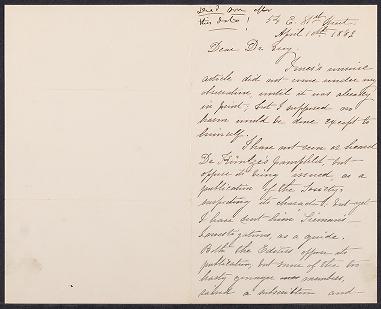 this date!
54 E. 81st Street.
April 10th 1882
Dear Dr.
Jones's unwise
article did not come under my
observation until it was already
in print, but I supposed no
harm would be done except to
himself.
I have not seen or heard
Dr Küntze's pamphlet but
oppose its being issued as a
publication of the Society,
its character, but yet
I have sent him
Investigations, as a guide.
Both the Editors oppose its
publication, but some of the too
hasty younger members,
a subscription and